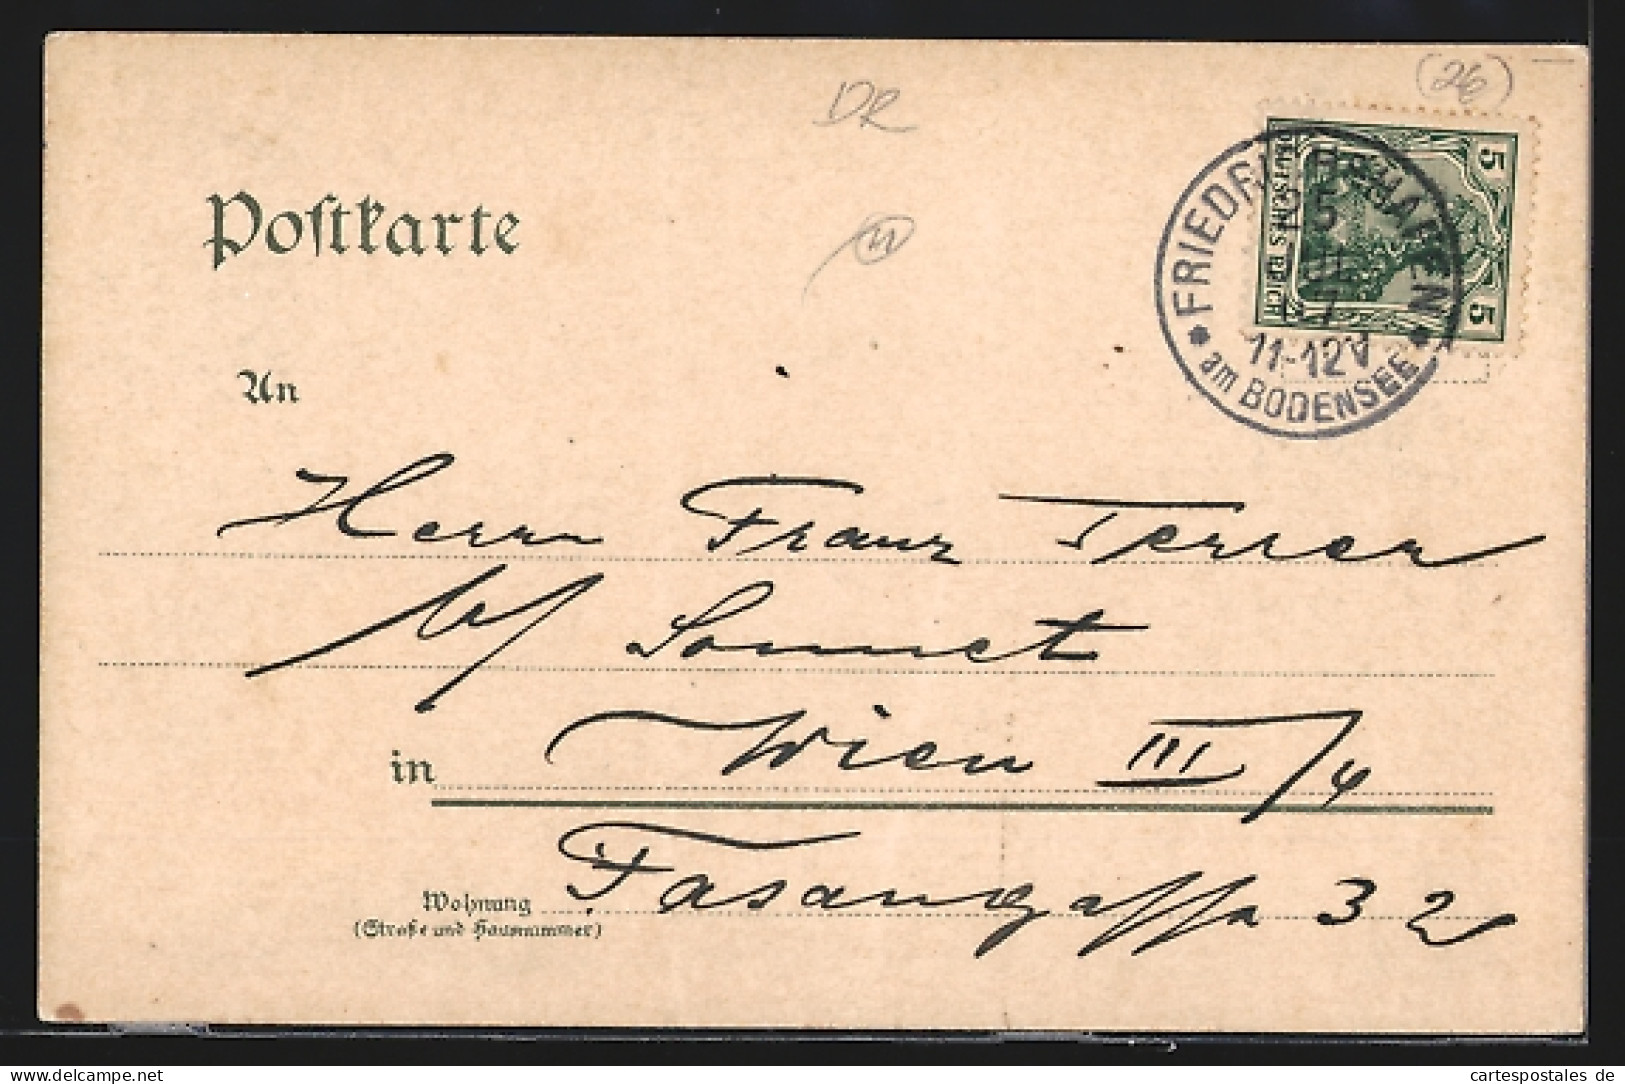 DR
(26)
Postkarte
5 5
DEUTSCHES REICH
FRIEDRICHSHAFEN
11-12V
am BODENSEE
An
Herrn Franz Terrer
b/ Sonnet
in Wien III/4
Wohnung Fasangasse 32
(Straße und Hausnummer)
delcampe.net
cartespostales de